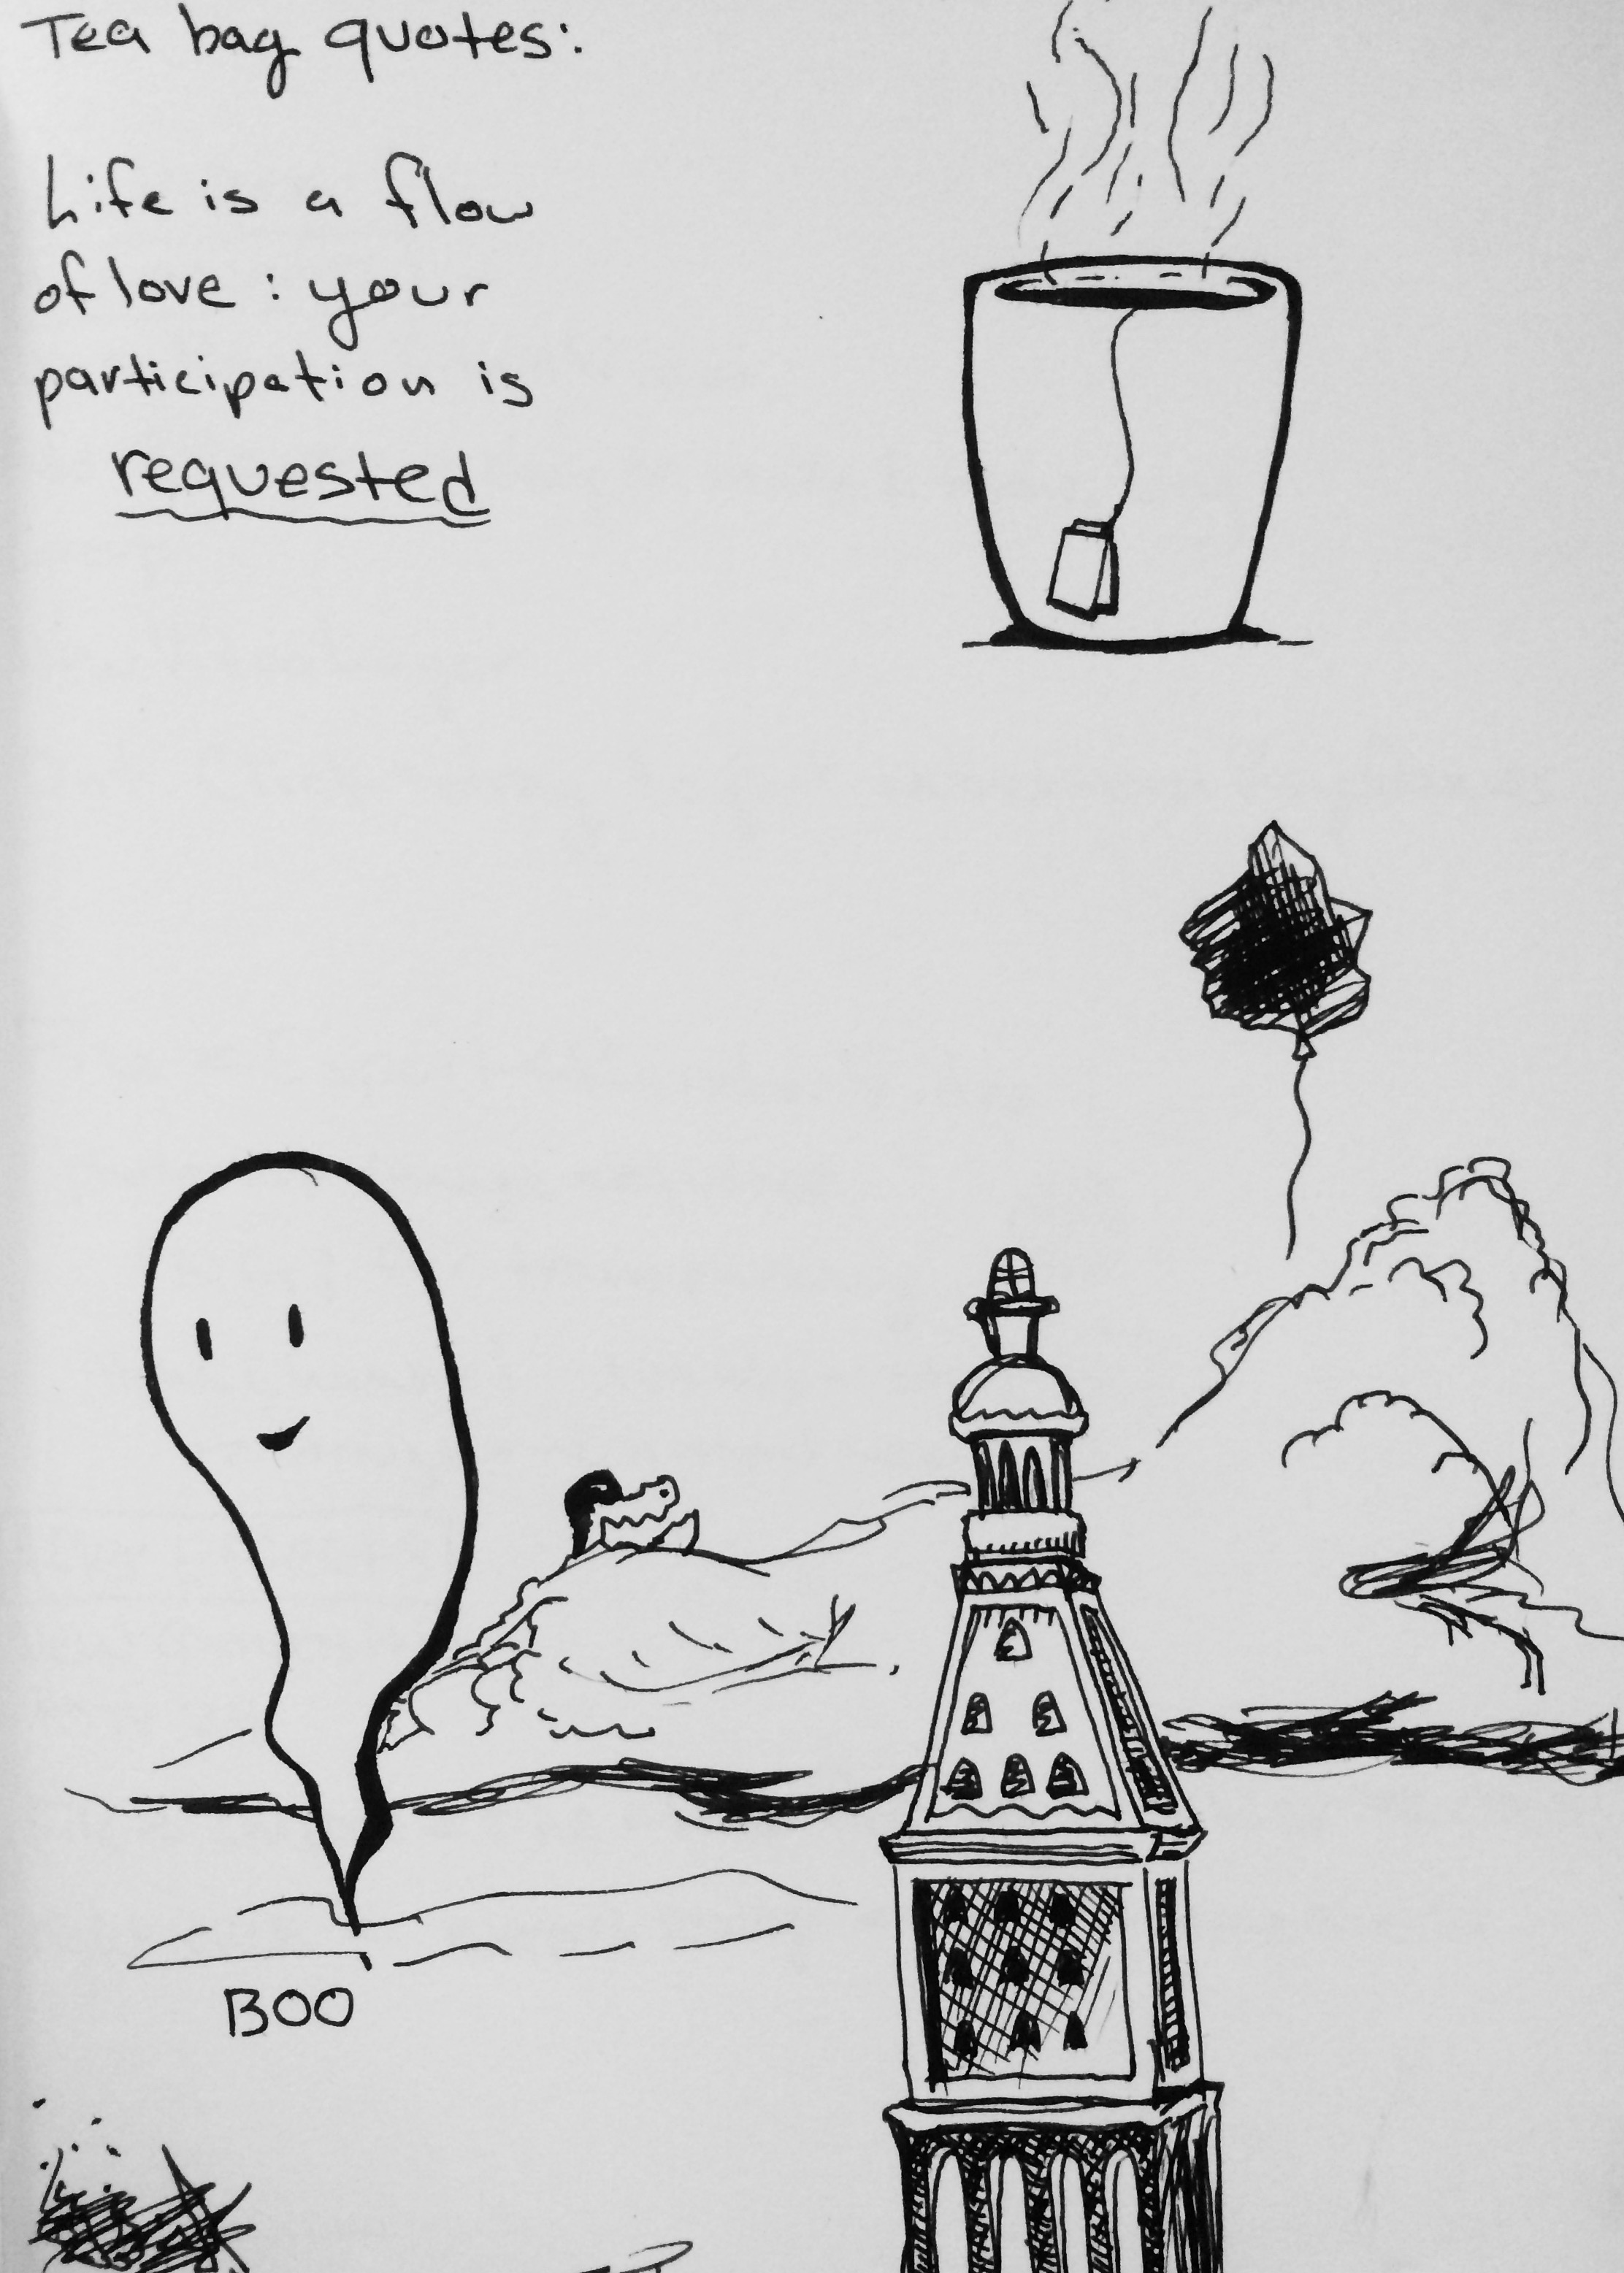 Tea bag quotes:
Life is a flow
of love : your
participation is
requested
BOO